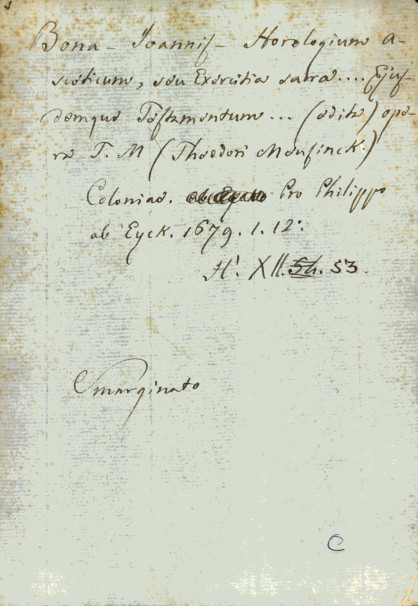 Bona - Joannis - Horologium a-
sceticum, seu Exercitia sacra.... Ejus-
demque Testamentum... (edita) ope-
ra T. M (Theodori Meusinck.)
Coloniae. Pro Philippo
ab Eyck. 1679. 1. 12º.
H.¹ XII. 54. 53.
Smarginato
C